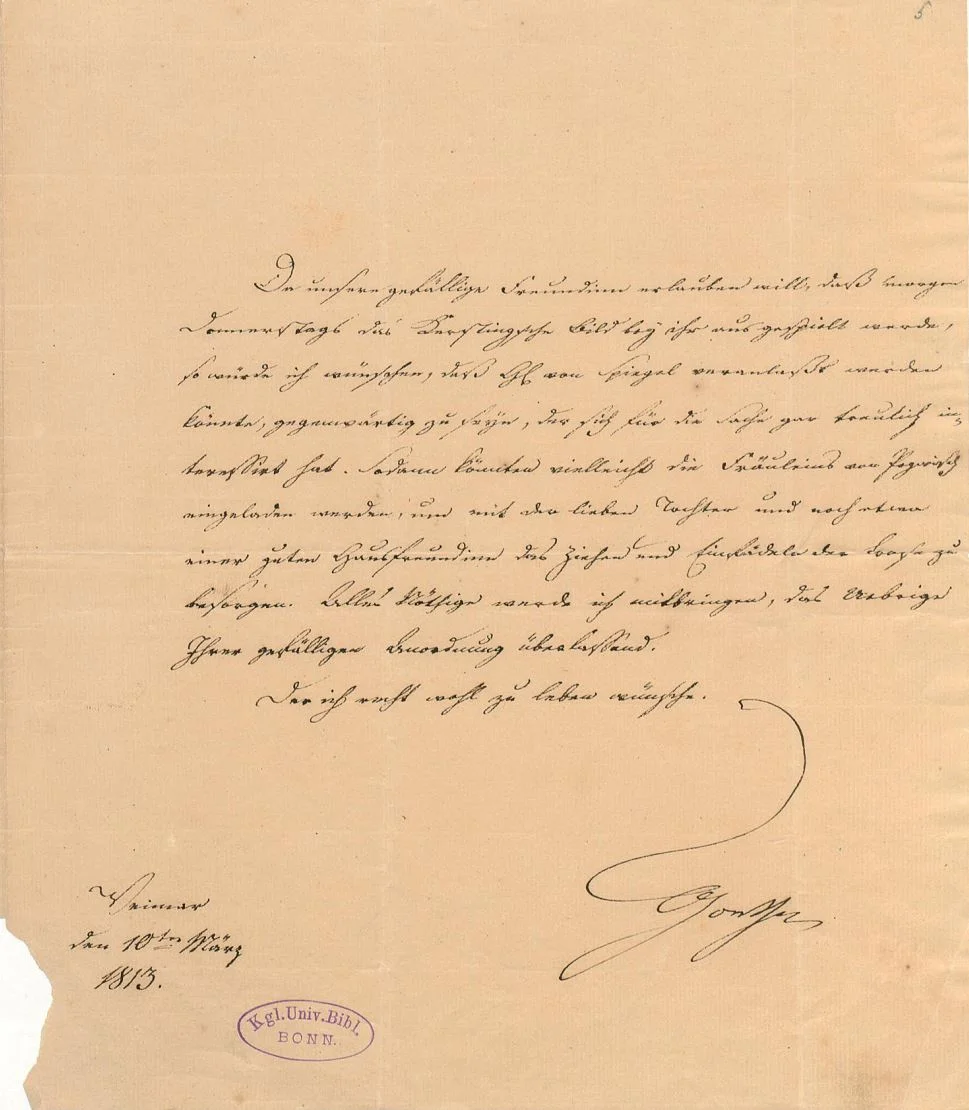 5
Da unsere gefällige Freundinn erlauben will, daß morgen
Donnerstags das Kerstingsche Bild bey ihr ausgespielt werde,
so würde ich wünschen, daß H. von Spiegel veranlaßt werden
könnte, gegenwärtig zu seyn, der sich für die Sache gar treulich in-
teressirt hat. Sodann könnten vielleicht die Fräuleins von
eingeladen werden, um mit der lieben Tochter und noch etwa
einer guten Hausfreundinn das Ziehen und Einfädeln der Loose zu
besorgen. Alles Nöthige werde ich mitbringen, das Uebrige
Ihrer gefälligen Anordnung überlassend.
Der ich recht wohl zu leben wünsche.
Goethe
Weimar
den 10ten März
1813.
Kgl. Univ. Bibl.
BONN.